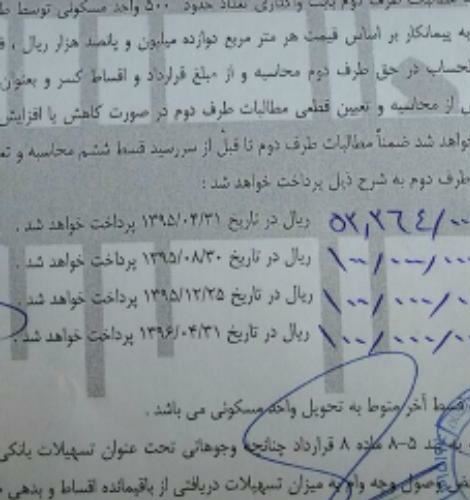 مطالبات طرف دوم بابت واگذاری تعداد حدود ۵۰۰ واحد مسکونی توسط
به پیمانکار بر اساس قیمت هر متر مربع دوازده میلیون و پانصد هزار ریال ،
الحساب در حق طرف دوم محاسبه و از مبلغ قرارداد و اقساط کسر و بعنوان
از محاسبه و تعیین قطعی مطالبات طرف دوم در صورت کاهش یا افزایش
خواهد شد ضمناً مطالبات طرف دوم تا قبل از سررسید قسط ششم محاسبه و
طرف دوم به شرح ذیل پرداخت خواهد شد :
ریال در تاریخ ۱۳۹۵/۰۴/۳۱ پرداخت خواهد شد .
۱۰۰/۰۰۰/۰۰ ریال در تاریخ ۱۳۹۵/۰۸/۳۰ پرداخت خواهد شد .
۱۰۰/۰۰۰/۰۰ ریال در تاریخ ۱۳۹۵/۱۲/۲۵ پرداخت خواهد شد .
۱۰۰/۰۰۰/۰۰ ریال در تاریخ ۱۳۹۶/۰۴/۳۱ پرداخت خواهد شد .
قسط آخر منوط به تحویل واحد مسکونی می باشد .
بند ۵-۸ ماده ۸ قرارداد چنانچه وجوهاتی تحت عنوان تسهیلات بانکی
وصول وجه وام به میزان تسهیلات دریافتی از باقیمانده اقساط و بدهی